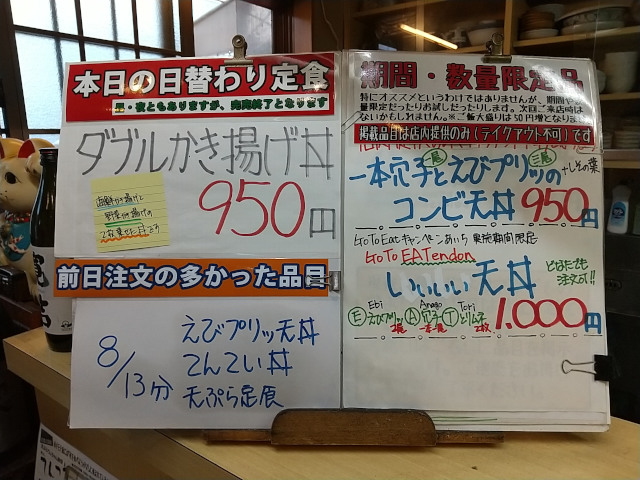 本日の日替わり定食
昼・夜ともありますが、完売終了となります
ダブルかき揚げ丼
950円
海鮮かき揚げと
野菜かき揚げの
2枚乗せ丼です
前日注文の多かった品目
8/13分
えびプリッ天丼
てんてい丼
天ぷら定食
期間・数量限定品
特にオススメというわけではありませんが、期間や
量限定だったりお試しだったりします。次回ご来店時は
ないかもしれません。※ご飯大盛りは50円増となります
掲載品目は店内提供のみ(テイクアウト不可)です
一本穴子とえびプリッツの
一尾 三尾 +しその葉
コンビ天丼 950円
GoToEatキャンペーンあいち 実施期間限定
GoTo EATendon
いいいい天丼
どなたでも
注文可!!
Ebi Anago Tori
Ⓔえびプリッ Ⓐ穴子 Ⓣとりムネ
2尾 一本 2枚
1.000円